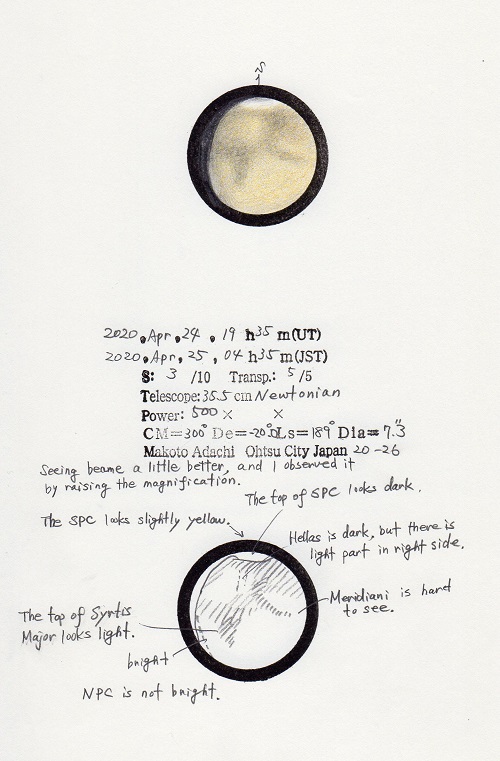 S
2020, Apr, 24, 19 h 35 m (UT)
2020, Apr, 25, 04 h 35 m (JST)
S: 3 /10 Transp.: 5 /5
Telescope: 35.5 cm Newtonian
Power: 500 × ×
CM=300° De=-20.0 Ls=189° Dia=7.3"
Makoto Adachi Ohtsu City Japan 20-26
Seeing beame a little better, and I observed it
by raising the magnification.
The top of SPC looks dark.
The SPC looks slightly yellow.
Hellas is dark, but there is
light part in right side.
Meridiani is hard
to see.
The top of Syrtis
Major looks light.
bright
NPC is not bright.